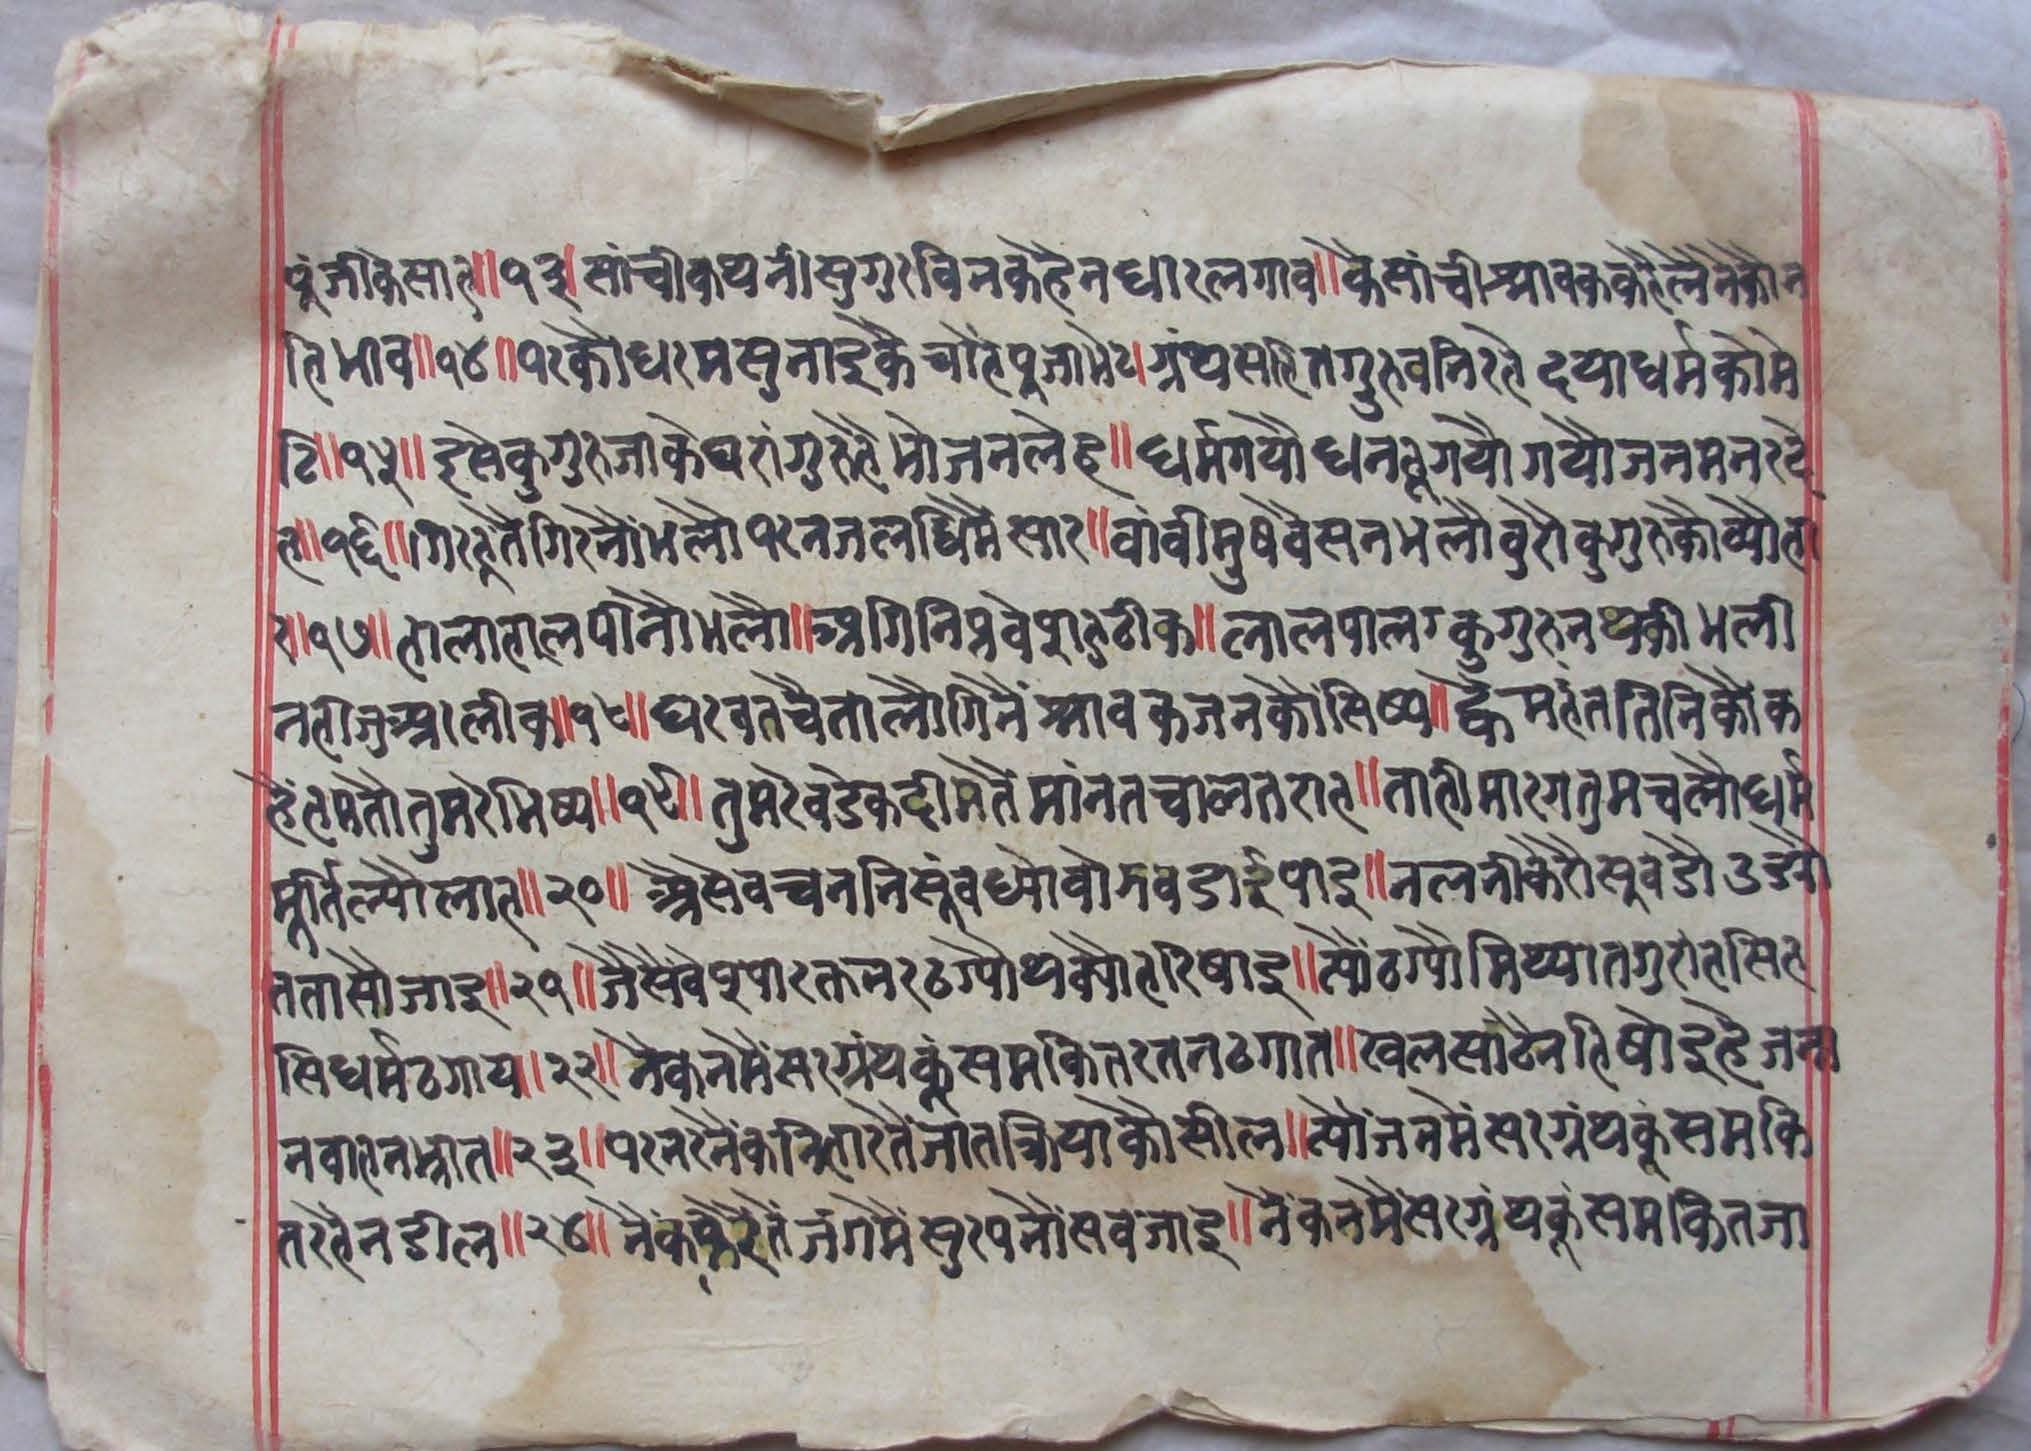 पूंजीकेसाह॥१३॥सांचीकथनीसुगुरविनकहैनधारलगाव॥कैसांचीश्रावककहैलैनकौन
हिभाव॥१४॥परकौधरमसुनाइकैचौहैपुजाभेट।ग्रंथसहितगुरुवनिरहेदयाधर्मकौमे
टि॥१५॥इसेकुगुरुजाकेघरांगुरुह्वैभोजनलेह॥धर्मगयौधनहूगयौगयौजनमनरदे
ह॥१६॥गिरहूतैंगिरनौंभलौपरनजलधिमैंसार॥वांवीमुषवैसनभलौवुरौकुगुरुकौव्यौहा
र॥१७॥हालाहालपीनौभलौ॥अगिनिप्रवेशहुठीक॥लालपालकुगुरुनथकीभली
नहीजुअलीक॥१८॥घरवतचैतालौगिनैंश्रावकजनकौंसिष्य॥ह्वैमहंततिनिकौंक
हैंहमतौतुमरेभिष्य॥१९॥तुमरेवडेकदीमतैंमांनतचालतराह॥ताहीमारगतुमचलौधर्म
मूर्तिल्यौलाह॥२०॥अैसेवचननिसूंवध्यौवोझवडाईपाइ॥नलनीकैरौसूवडौउडयौ
ततासौजाइ॥२१॥जैसैंवेश्यारक्तनरठग्यौथक्यौहरिषाइ॥त्यौंठग्यौमिथ्यातगुरांहसिह
सिधर्मठगाय॥२२॥नैकनमैंसरग्रंथकूंसमकितरतनठगात॥खलसाटैनहिषोइहैजना
नवाहनभ्रात॥२३॥परनरनैंकनिहारतैंजातक्रियाकौसील॥त्यौंजनमेंसरग्रंथकूंसमकि
तरहैनडील॥२४॥नैंकजंगमैंसुरपनौंसवजाइ॥नैंकनमैंसरग्रंथकूंसमकितजा